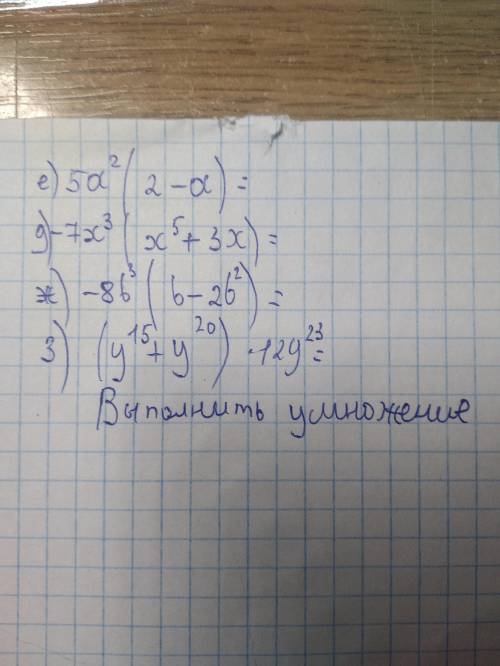 е) 5a²(2-a)=
д) -7x³(x⁵+3x)=
ж) -8b³(b-2b²)=
з) (y¹⁵+y²⁰)·12y²³=
Выполнить умножение